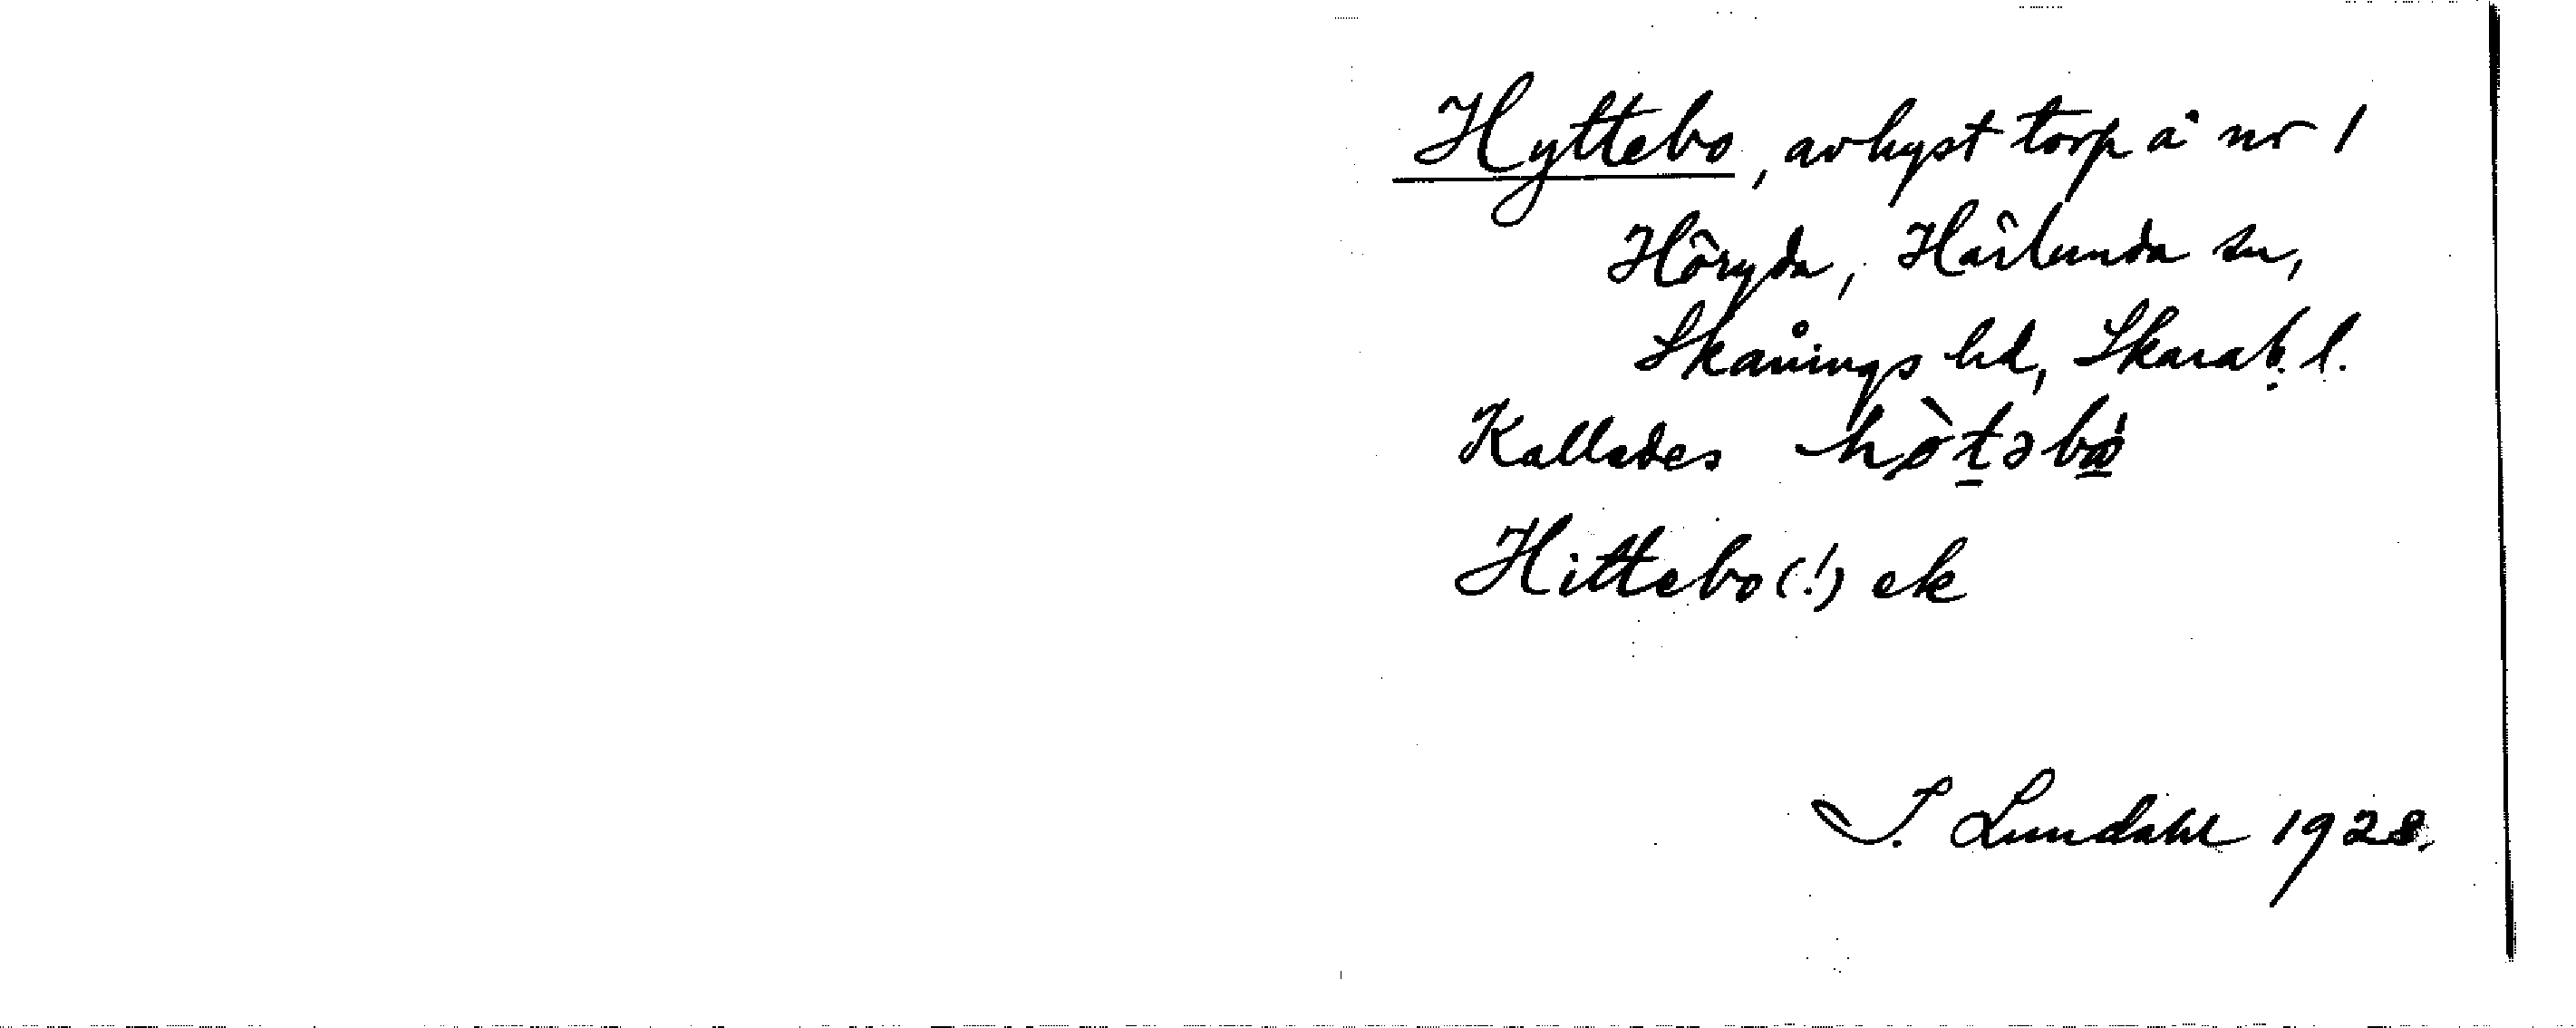 Hyttebo, avhyst torp å nr 1
Höryda, Härlunda sn,
Skånings hd, Skarab. l.
Kallades
Hittebo (!) ek
I. Lundahl 1928.